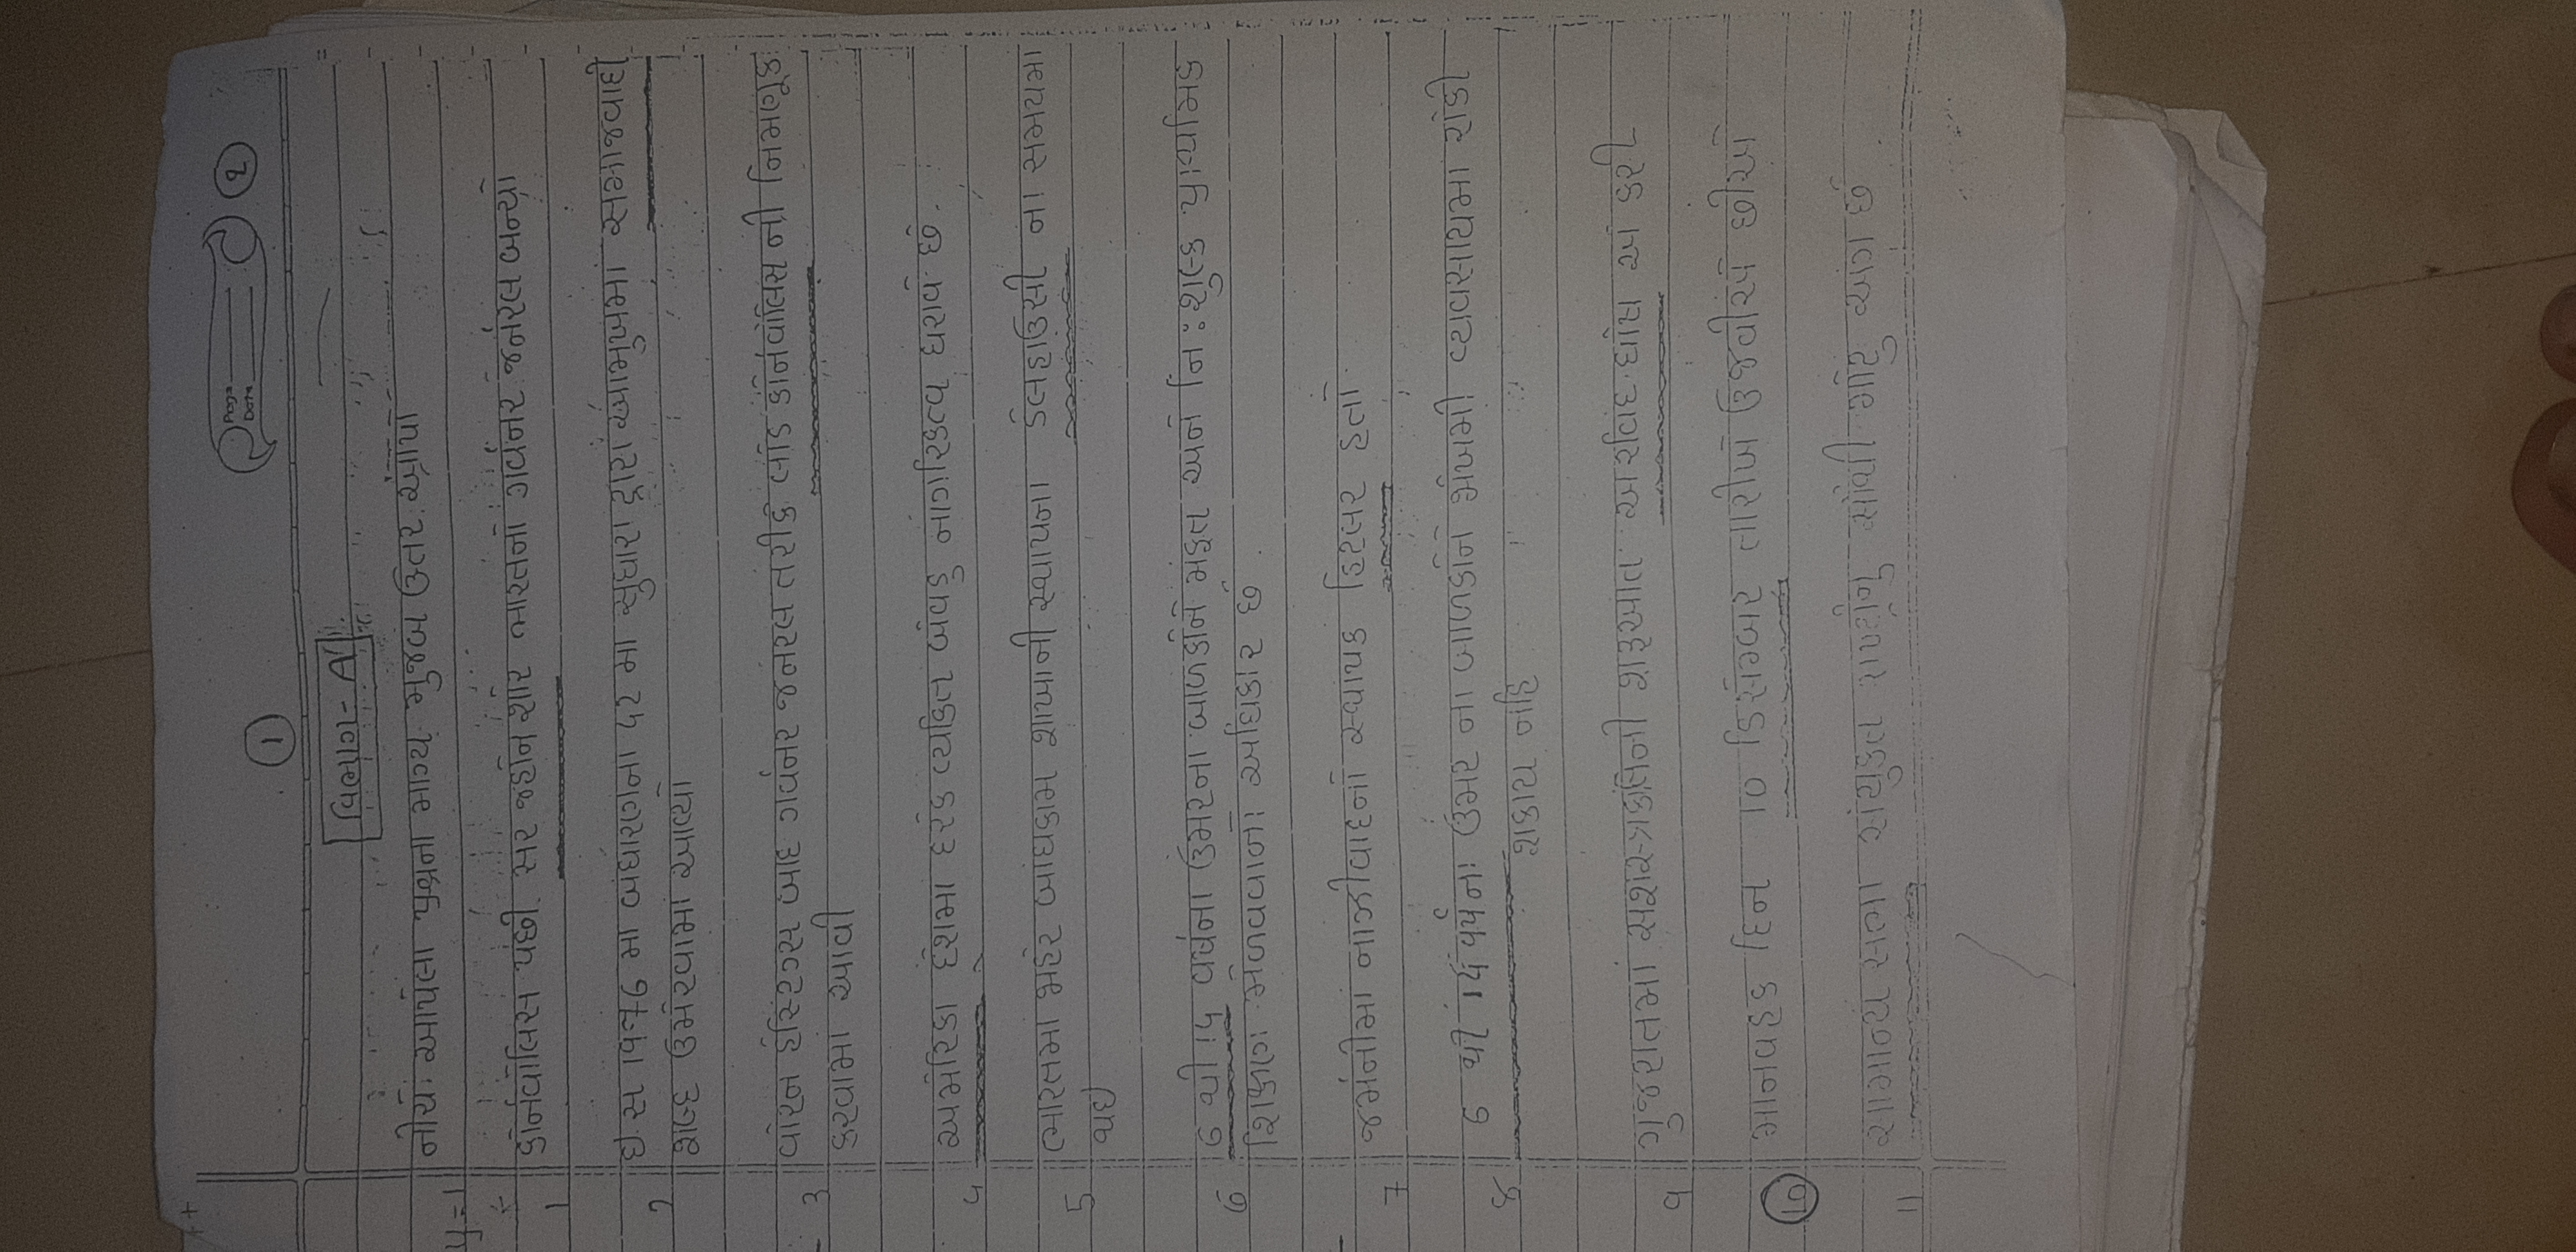 ++
Page
Date
2
1
વિભાગ - A
નીચે આપેલા પ્રશ્નના માગ્યા મુજબ ઉતર આપો
1 કોર્નવોલિસ પછી સર જ્હોન શોર ભારતનો ગર્વનર જનરલ બન્યો
2 ઈ.સ 1976 મા બંધારણના 42 મા સુધારા દ્વારા આમુખમાં સમાજવાદી
શબ્દ ઉમેરવામાં આવ્યો
3 વોરન હેસ્ટિંગ્સ બાદ ગર્વનર જનરલ તરીકે લોર્ડ કોર્નવોલિસ ની નિમણૂક
કરવામાં આવી
4 અમેરિકા દેશમાં દરેક વ્યકિત બેવડુ નાગરિકત્વ ધરાવે છે.
5 ભારતમાં જાહેર બાંધકામ શાખાની સ્થાપના ડેલહાઉસી ના સમયમા
થઈ
6 6 થી 14 વર્ષના ઉંમરના બાળકોને મફત અને નિ:શુલ્ક પ્રાથમિક
શિક્ષણ મેળવવાનો અધિકાર છે
7 જર્મનીમાં નાઝીવાદનો સ્થાપક હિટલર હતો
8 6 થી 14 વર્ષના ઉંમર ના બાળકોને જોખમી વ્યવસાયમા રોકી
શકાય નહિ
9 ગુજરાતમાં સશસ્ત્રક્રાંતિની શરૂઆત અરવિંદ ઘોષ એ કરી
10 માનવહક દિન 10 ડિસેમ્બર તારીખે ઉજવીએ છીએ
11 સામાન્ય સભા સંયુકત રાષ્ટ્રોનુ સૌથી મોટુ અંગ છે